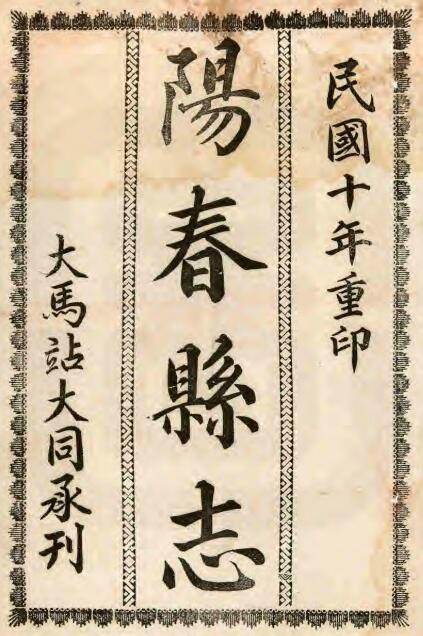 民國十年重印
陽春縣志
大馬站大同承刊